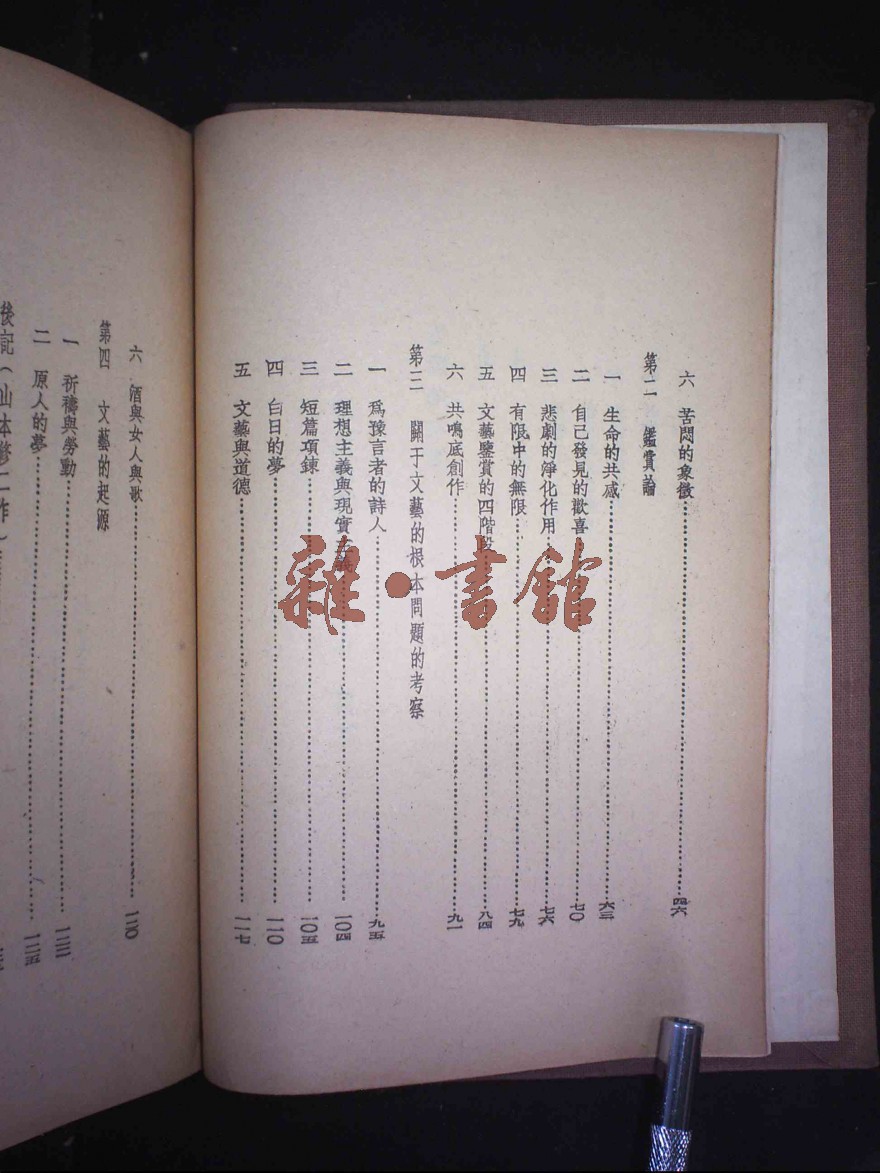 六 苦悶的象徵……四六
第二 鑑賞論
一 生命的共感……六三
二 自己發見的歡喜……七〇
三 悲劇的淨化作用……七六
四 有限中的無限……七九
五 文藝鑒賞的四階段……八四
六 共鳴底創作……九一
第三 關于文藝的根本問題的考察
一 爲豫言者的詩人……九五
二 理想主義與現實……一〇四
三 短篇項鍊……一〇五
四 白日的夢……一一〇
五 文藝與道德……一一七
六 酒與女人與歌……一二〇
第四 文藝的起源
一 祈禱與勞動……一二三
二 原人的夢……一二五
後記(山本修二作)
雜·書館